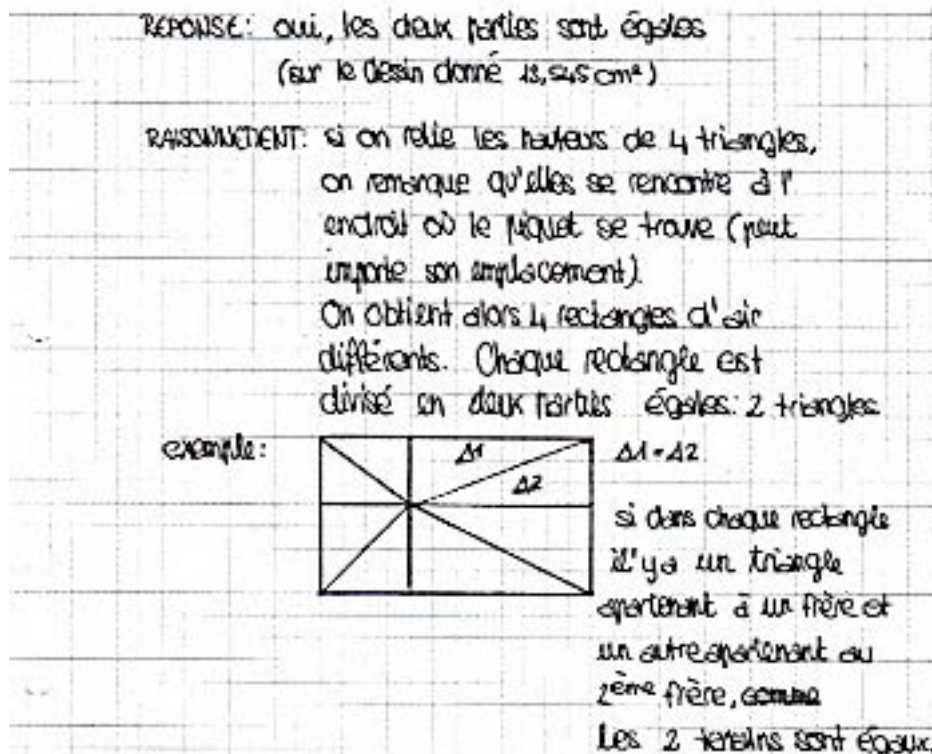 REPONSE: oui, les deux parties sont égales
(sur le dessin donné 13,545 cm²)
RAISONNEMENT: si on relie les hauteurs de 4 triangles,
on remarque qu'elles se rencontre à l'
endroit où le piquet se trouve (peut
importe son emplacement).
On obtient alors 4 rectangles d'air
différents. Chaque rectangle est
divisé en deux parties égales: 2 triangles
exemple:
Δ1
Δ2
Δ1=Δ2
si dans chaque rectangle
il'y a un triangle
apartenant à un frère et
un autre apartenant au
2ème frère, comme
les 2 terrains sont égaux